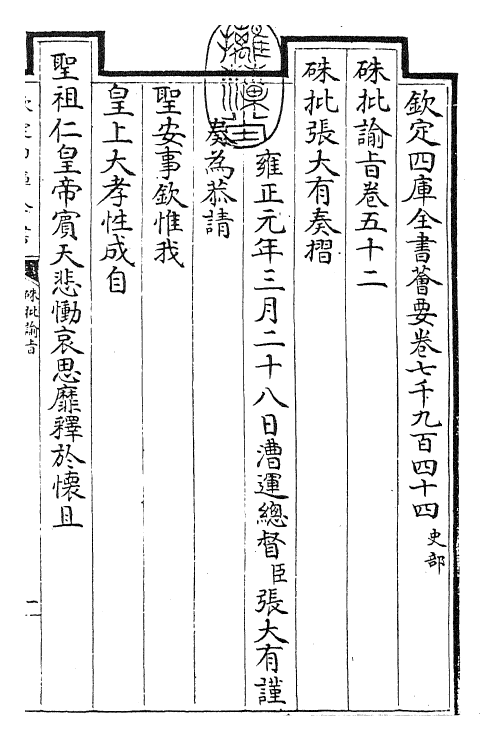 欽定四庫全書薈要卷七千九百四十四 史部
硃批諭旨卷五十二
硃批張大有奏摺
雍正元年三月二十八日漕運總督臣張大有謹
奏為恭請
聖安事欽惟我
皇上大孝性成自
聖祖仁皇帝賓天悲慟哀思靡釋於懷且
硃批諭旨
一